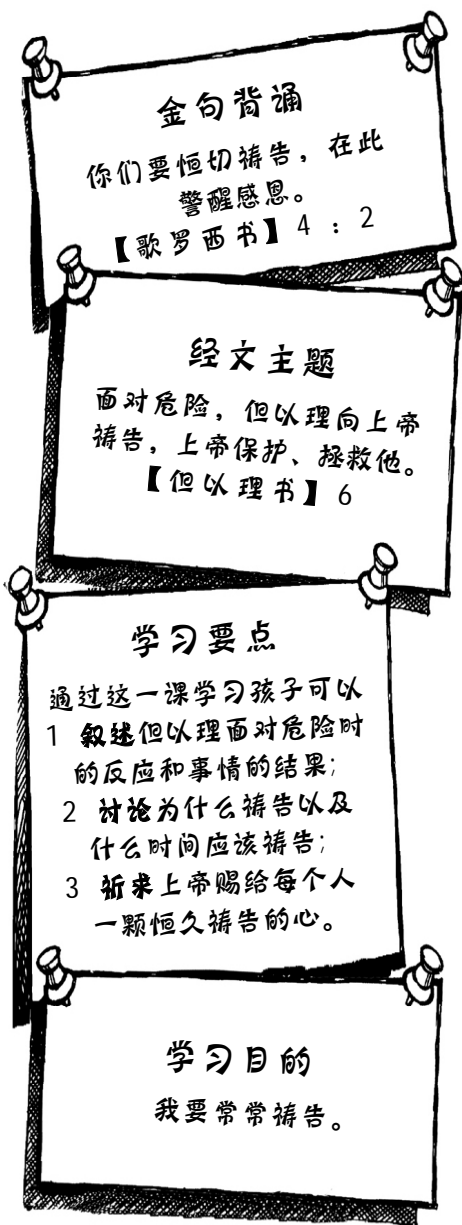 金句背诵
你们要恒切祷告，在此
警醒感恩。
【歌罗西书】4：2
经文主题
面对危险，但以理向上帝
祷告，上帝保护、拯救他。
【但以理书】6
学习要点
通过这一课学习孩子可以
1 叙述但以理面对危险时
的反应和事情的结果；
2 讨论为什么祷告以及
什么时间应该祷告；
3 祈求上帝赐给每个人
一颗恒久祷告的心。
学习目的
我要常常祷告。